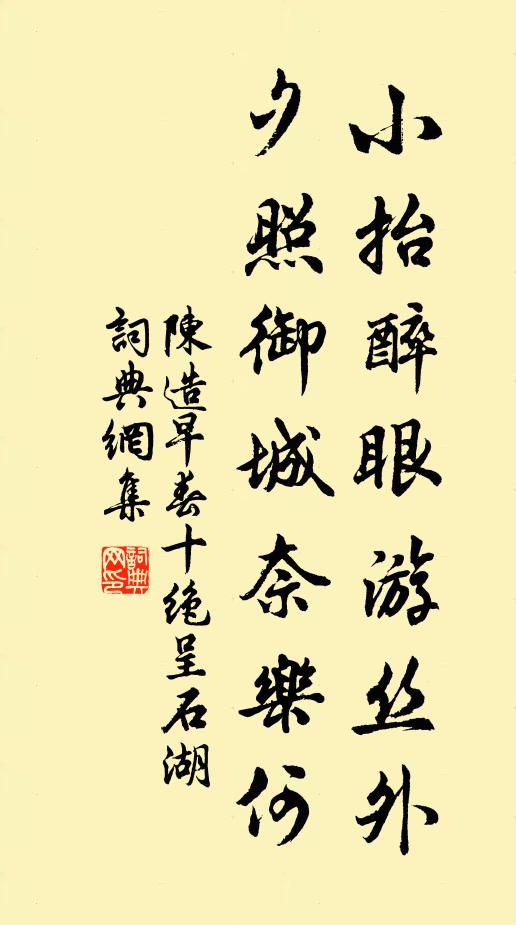 小抬醉眼游丝外
夕照御城奈樂何
陳造早春十绝呈石湖
詞典網集
詞典网印